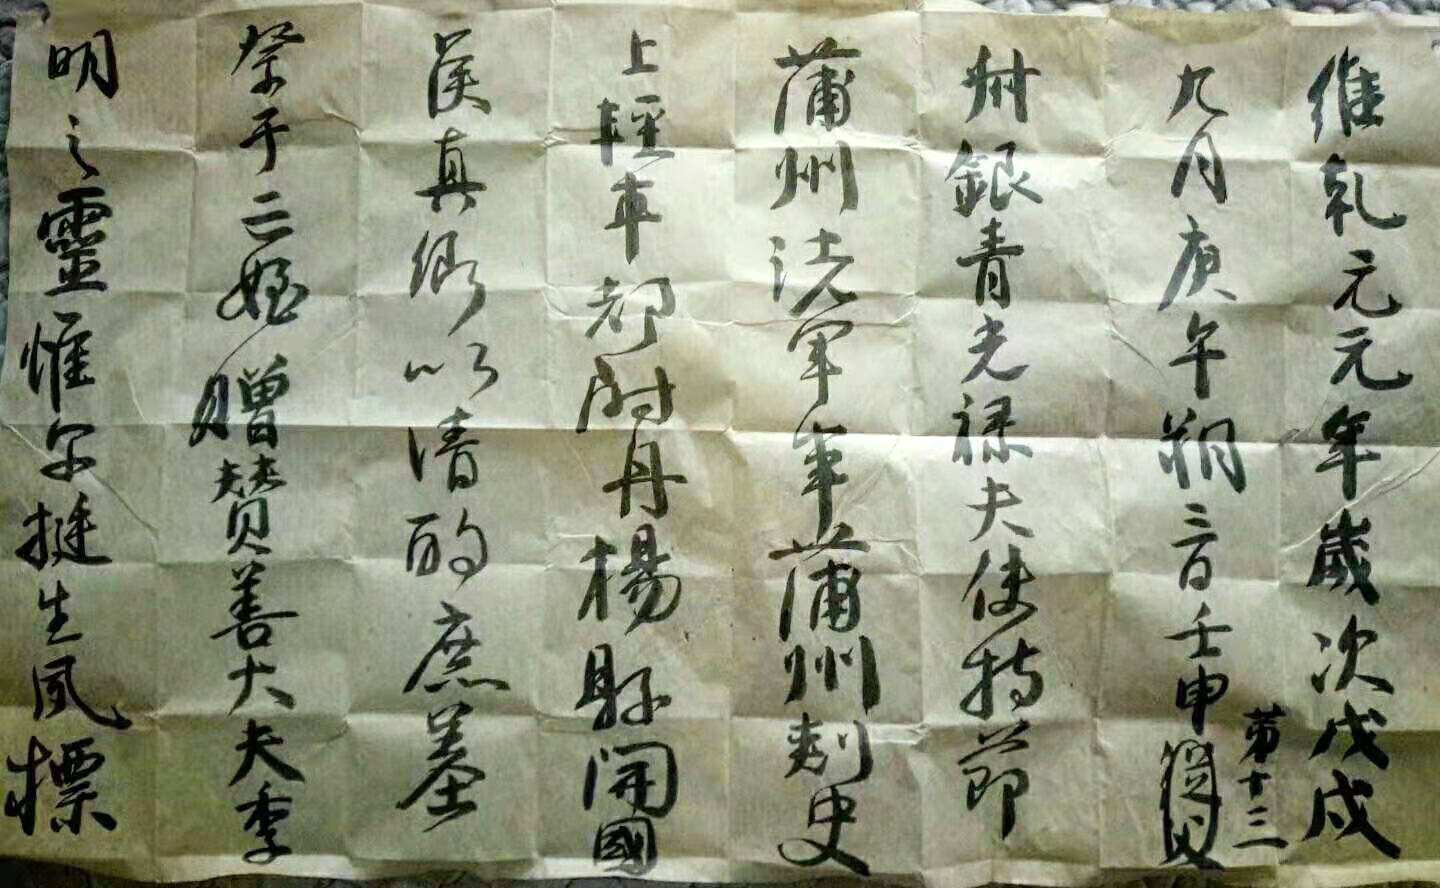 維乾元元年歲次戊戌
九月庚午朔三日壬申
第十三
叔銀青光禄夫使持節
蒲州諸軍事蒲州刺史
上輕車都尉丹楊縣開國
侯真卿以清酌庶羞
祭于亡姪贈贊善大夫季
明之靈惟尔挺生夙標